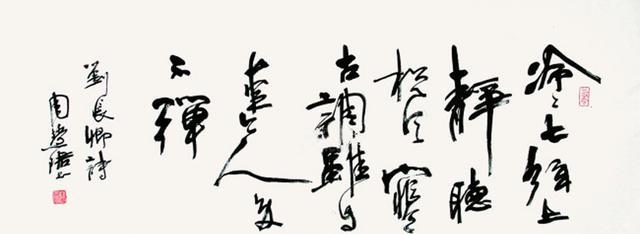 泠〻七弦上
靜聽
松风寒
古調雖自
愛今人多
不彈
劉長卿詩
周慧珺